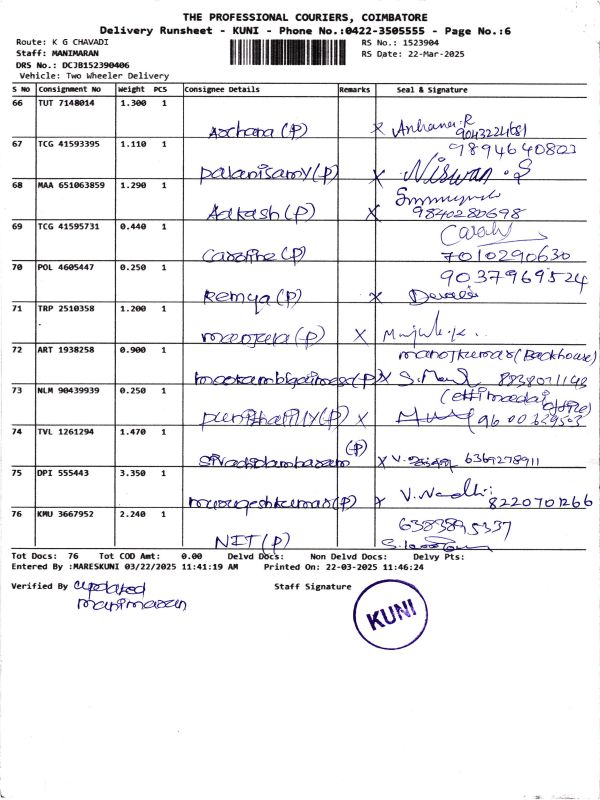 THE PROFESSIONAL COURIERS, COIMBATORE
Delivery Runsheet - KUNI - Phone No.:0422-3505555 - Page No.:6
Route: K G CHAVADI RS No.: 1523904
Staff: MANIMARAN RS Date: 22-Mar-2025
DRS No.: DCJB152390406
Vehicle: Two Wheeler Delivery
S No Consignment No Weight PCS Consignee Details Remarks Seal & Signature
66 TUT 7148014 1.300 1
Archana (P) Archana.R
9043224681
67 TCG 41593395 1.110 1 9894640823
palanisamy (P) Niswan.S
68 MAA 651063859 1.290 1
Aakash (P) 9840280698
69 TCG 41595731 0.440 1
Caroline (P) 7010290630
70 POL 4605447 0.250 1 9037969524
Remya (P)
71 TRP 2510358 1.200 1
manjula (P)
72 ART 1938258 0.900 1 manojkumar (Backhouse)
(P) 8838071143
73 NLM 90439939 0.250 1 (ettimadai office)
(P) 9600629503
74 TVL 1261294 1.470 1 (P)
Sivachidambaram 6369278911
75 DPI 555443 3.350 1
murugeshkumar (P) V. Nandhi
8220701266
76 KMU 3667952 2.240 1 6383895337
NIT (P)
Tot Docs: 76 Tot COD Amt: 0.00 Delvd Docs: Non Delvd Docs: Delvy Pts:
Entered By :MARESKUNI 03/22/2025 11:41:19 AM Printed On: 22-03-2025 11:46:24
Verified By updated Staff Signature
manimaran
KUNI